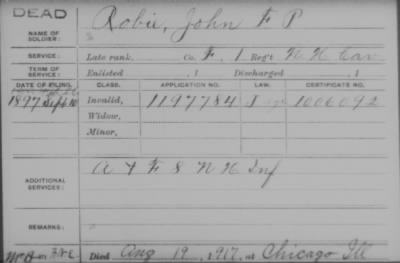 DEAD
NAME OF SOLDIER: Robie, John F P
SERVICE: Late rank, Co. F, 1 Reg't N H Cav
TERM OF SERVICE: Enlisted , 1 Discharged , 1
DATE OF FILING. CLASS. APPLICATION NO. LAW. CERTIFICATE NO.
1897 Sept 10 Invalid, 1197784 1006092
Widow,
Minor,
ADDITIONAL SERVICES: A & F 8 N H Inf
REMARKS:
Died Aug 19, 1917, at Chicago Ill